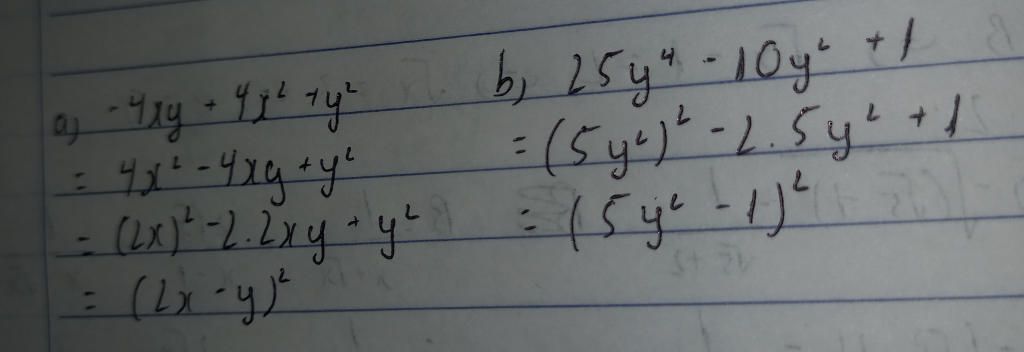 a) -4xy + 4x² + y²
= 4x² - 4xy + y²
= (2x)² - 2.2xy + y²
= (2x - y)²
b) 25y⁴ - 10y² + 1
= (5y²)² - 2.5y² + 1
= (5y² - 1)²